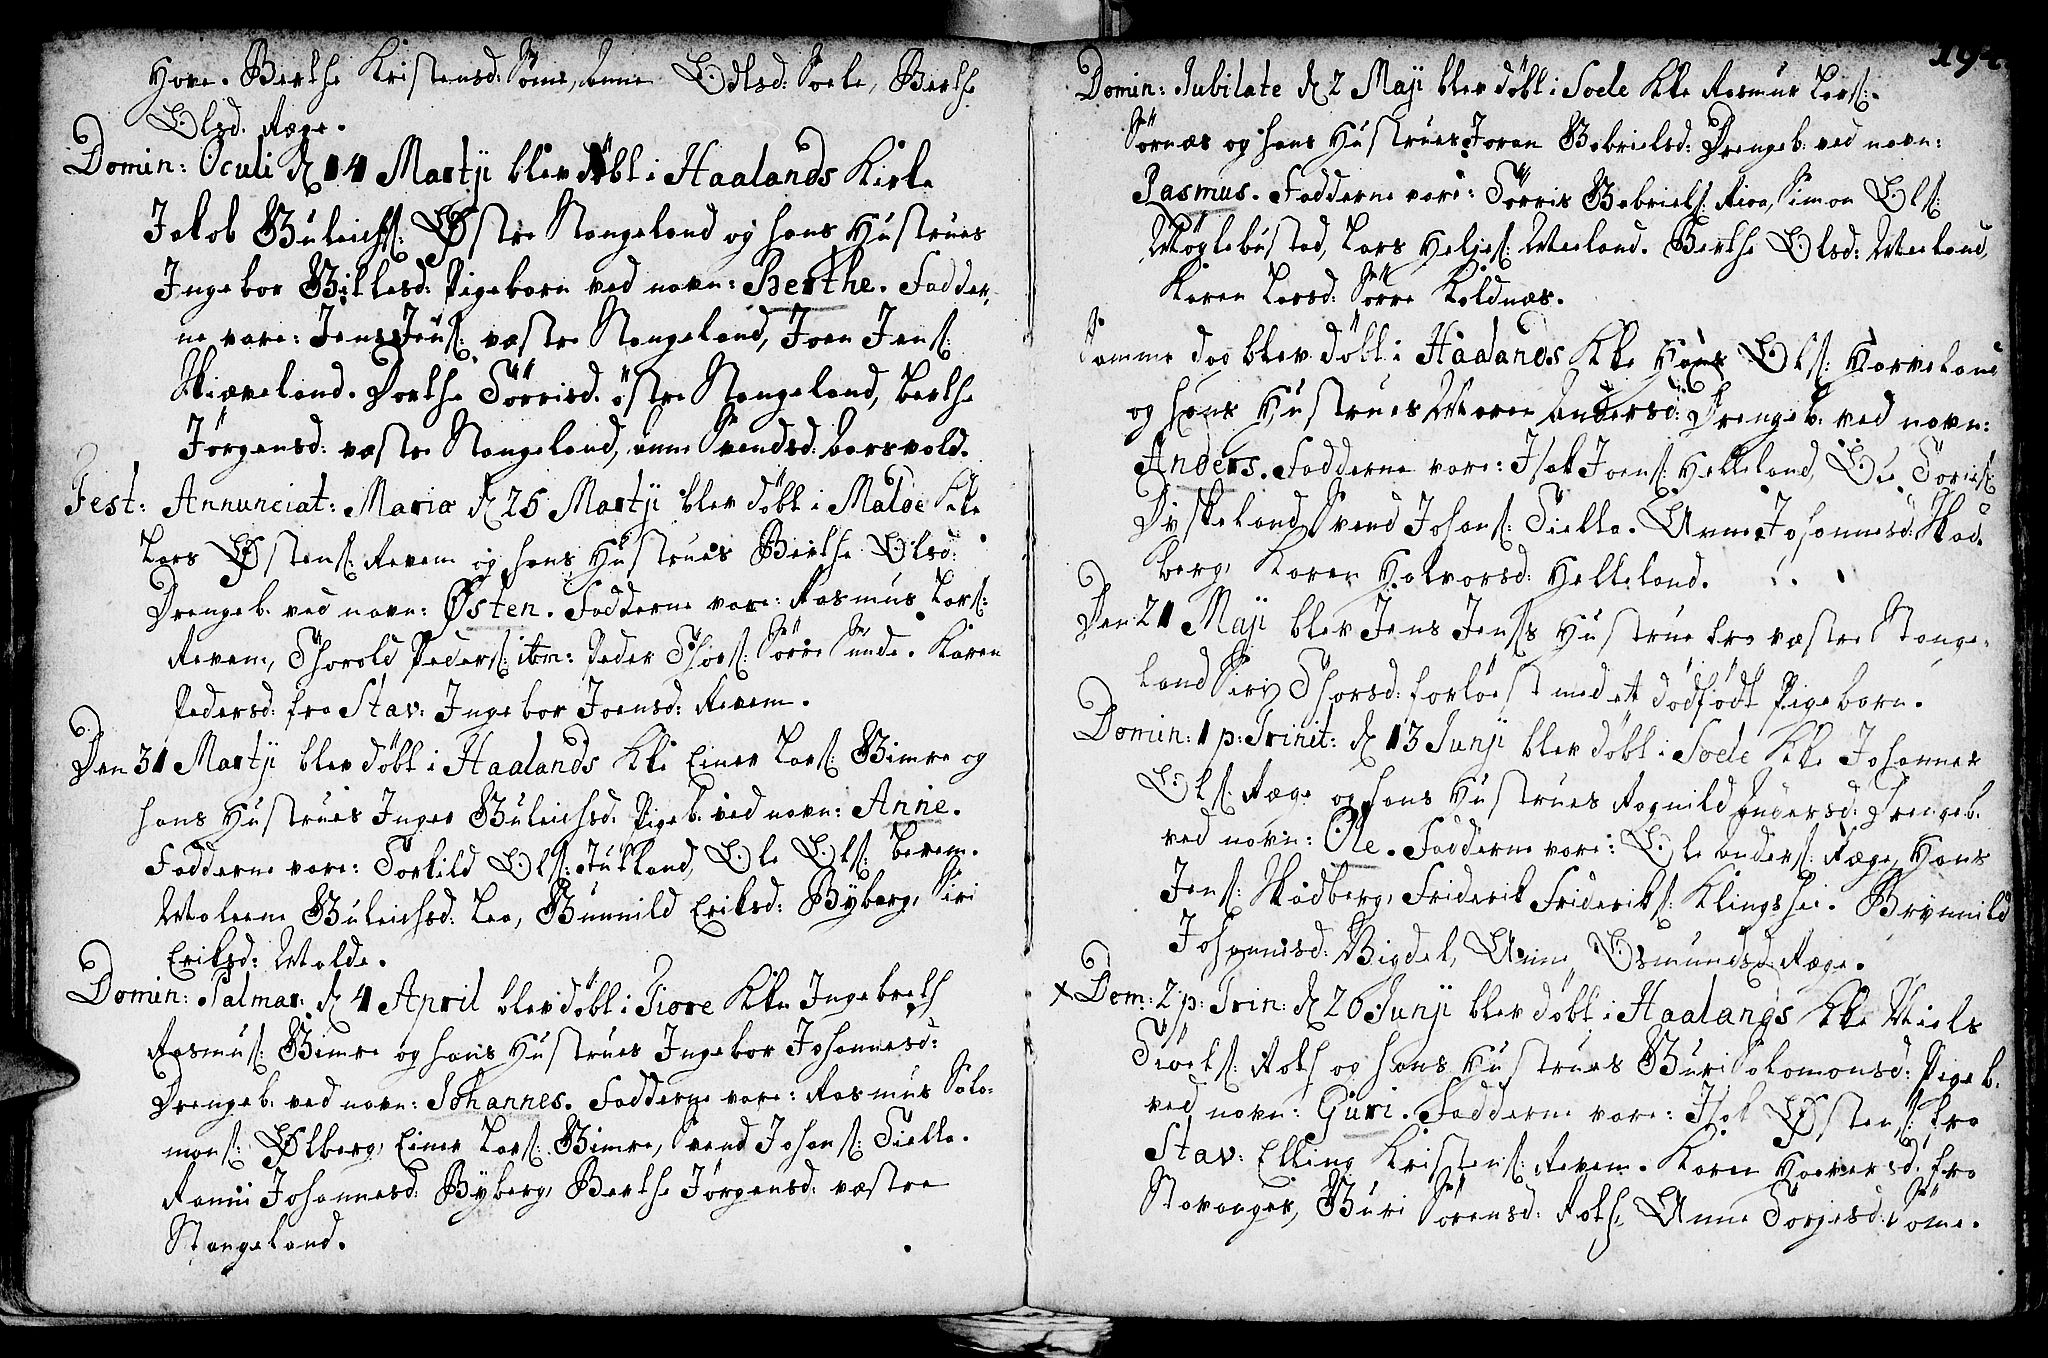 Hove. Berthe Kristensd: Söme, Anne Odlsd: Soele, Berthe
Olsd. Ræge.
Domin: Oculi d. 14 Martji blev döbt i Haalands Kirke
Jakob Guleichs: Østre Stangeland og hans Hustrues
Ingebor Gitlesd: Pigebarn ved navn: Berthe. Fadder,
ne vare: Jens Jens: væstre Stangeland, Joen Jens:
Skiæveland. Dorthe Törrisd. östre Stangeland, Berthe
Jörgensd: væstre Stangeland, Anne Svendsd:
Fest: Annunciat: Mariæ d. 25 Martji blev döbt i Maløe Kke
Lars Østens: Revem og hans Hustrues Berthe Olsd:
Drengeb. ved navn: Østen. Fadderne vare: Rasmus Lars:
Revem, Thorold Peders: ibm: Peder Thörs: Sörre Sunde. Karen
Pedersd: fra Stav: Ingebor Joensd: Revem.
Den 31 Martji blev döbt i Haalands Kke Einer Lars: Gimre og
hans Hustrues Inger Guleichsd. Pigeb. ved navn: Anne.
Fadderne vare: Torkild Ols: Jutland, Ole Ols: Revem.
Maleene Guleichsd: Lea, Gunnild Eriksd: Byberg, Siri
Eriksd: Molde.
Domin: Palmar: d. 4 April blev döbt i Tiore Kke Ingebreth
Rasmus: Gimre og hans Hustrues Ingebor Johannesd:
Drengeb. ved navn: Johannes. Fadderne vare: Rasmus Salo-
mons: Ølberg, Einer Lars: Gimre, Svend Johans: Tielta.
Rannii Johannesd: Byberg, Berthe Jörgensd: væstre
Stangeland.
194.
Domin: Jubilate d. 2 Maji blev döbt i Soele Kke Rasmus Lars:
Sörnæs og hans Hustrues Joren Gabrielsd: Drengeb. ved navn:
Rasmus. Fadderne vare: Törris Gabriels: Risa, Simon Ols:
Möglebustad, Lars Heljes: Meeland. Berthe Olsd: Meeland,
Karen Larsd: Sörre Koldnæs.
Samme dag blev döbt i Haalands Kke Hans Ols: Harveland
og hans Hustrues Maren Andersd: Drengeb. ved navn:
Anders. Fadderne vare: Isak Joens: Helleland, Ole Toris:
Dyskeland, Svend Johans: Tielta. Anne Johannesd: Skad-
berg, Karen Halvorsd: Helleland.
Den 21 Maji blev Jens Jens's Hustrue fra væstre Stange-
land Siri Thorsd: forløest med et dödfödt Pigebarn.
Domin: 1 p: Trinit: d. 13 Junji blev döbt i Soele Kke Johannes
Ols: Ræge og hans Hustrues Ragnild Andersd: Drengeb.
ved navn: Ole. Fadderne vare: Ole Anders: Ræge, Hans
Jens: Skadberg, Friderik Frideriks: Klingshei. Brynnild
Johannisd: Vigdel, Anne Osmundsd: Ræge.
x Dom: 2 p: Trin: d. 20 Junji blev döbt i Haalands Kke Niels
Tröels: Roth og hans Hustrues Guri Salomonsd: Pigeb.
ved navn: Guri. Fadderne vare: Isak Østens: fra
Stav: Elling Kristens: Revem. Karen Haaversd: fra
Stavanger, Guri Sörensd: Roth, Anne Torgersd: Söme.